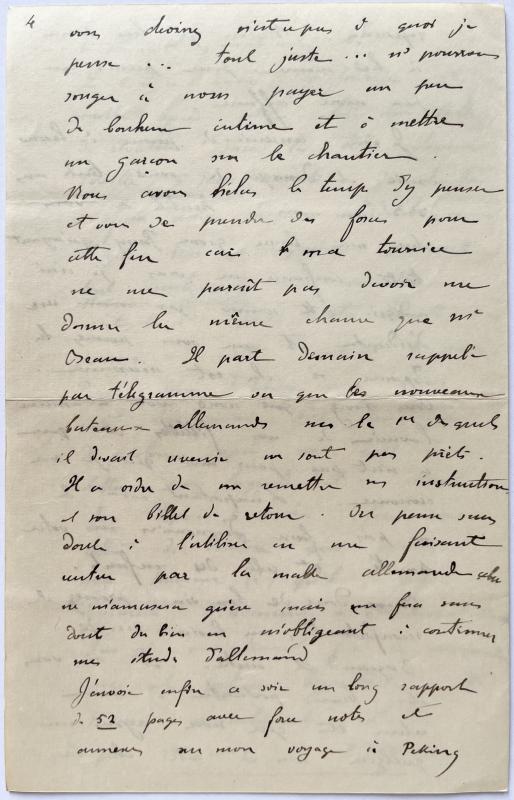 4
vous devinez n'est ce pas à quoi je
pense ... tout juste ... si pourrons
songer à nous payer un peu
de bonheur intime et à mettre
un garçon sur le chantier.
Nous avons hélas le temps d'y penser
et vous de prendre des forces pour
cette fin car ma tournée
ne me paraît pas devoir me
donner la même chance que Mr
Oseau. Il part demain rappelé
par télégramme vu que les nouveaux
bateaux allemands sur le 1er desquels
il devait revenir ne sont pas prêts.
Il a ordre de me remettre ses instructions
et son billet de retour. On pense sans
doute à l'utiliser en me faisant
rentrer par la malle allemande cela
ne m'amusera guère mais me fera sans
doute du bien en m'obligeant à continuer
mes études d'allemand
J'envoie enfin ce soir un long rapport
de 52 pages avec force notes et
annexes sur mon voyage à Peking